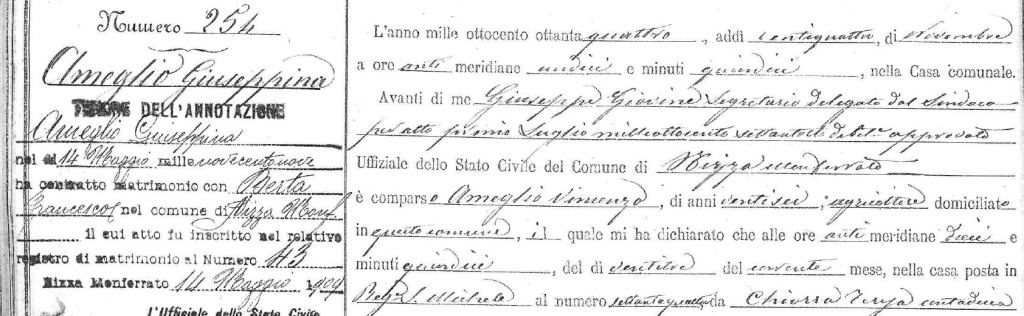 Numero 254
Ameglio Giuseppina
TENORE DELL'ANNOTAZIONE
Ameglio Giuseppina
nel dì 14 Maggio millenovecentonove
ha contratto matrimonio con Berta
Francesco nel comune di Nizza Monf.
il cui atto fu inscritto nel relativo
registro di matrimonio al Numero 43
Nizza Monferrato 14 Maggio 1909
l'Uffiziale dello Stato Civile
L'anno mille ottocento ottantaquattro, addì ventiquattro, di Novembre
a ore anti meridiane undici e minuti quindici, nella Casa comunale.
Avanti di me Giuseppe Giovine Segretario delegato dal Sindaco
per atto primo Luglio milleottocento debit. approvato
Uffiziale dello Stato Civile del Comune di Nizza Monferrato
è comparso Ameglio Vincenzo, di anni ventisei, agricoltore domiciliato
in questo comune, il quale mi ha dichiarato che alle ore anti meridiane dieci e
minuti quindici, del dì ventitre del corrente mese, nella casa posta in
Reg. S. Michele al numero settantaquattro da Chiorra Teresa contadina